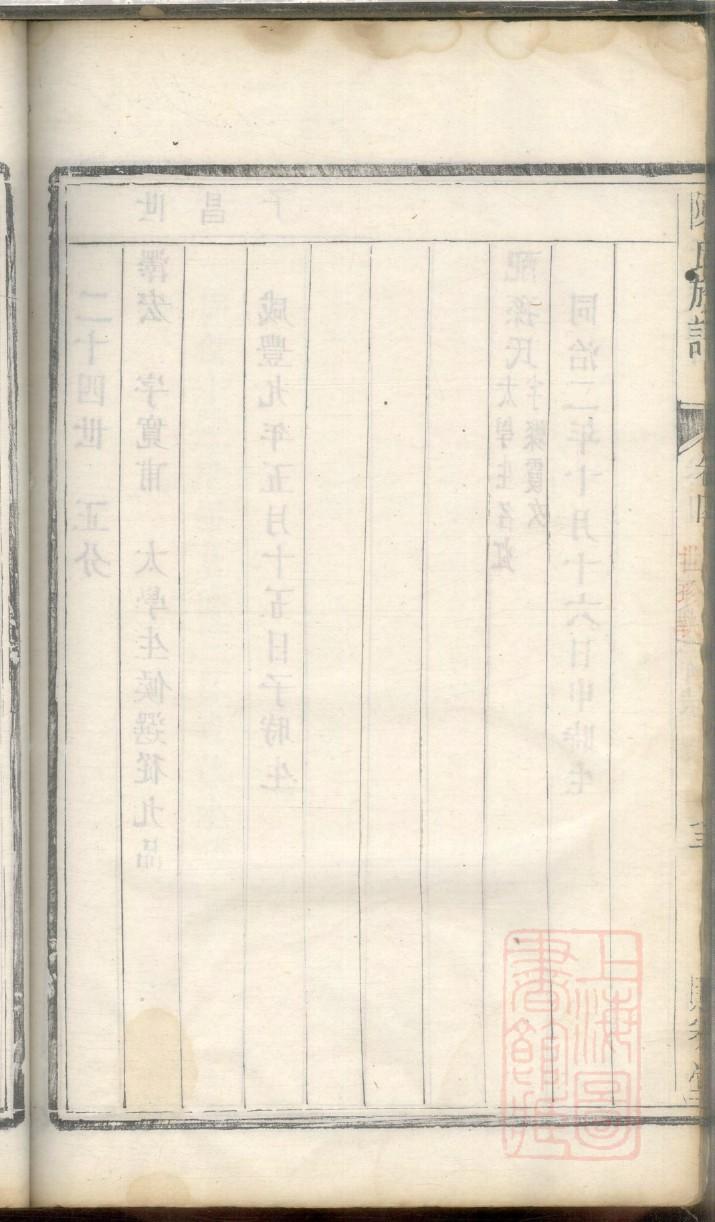 陳氏族譜
卷四
二十四世 正分
世 澤宏 字寬甫 太學生候選從九品
昌
子 咸豐九年五月十五日子時生
配孫氏太學生名虹
字燦霞女
同治二年十月十六日申時生
上海圖
書館藏